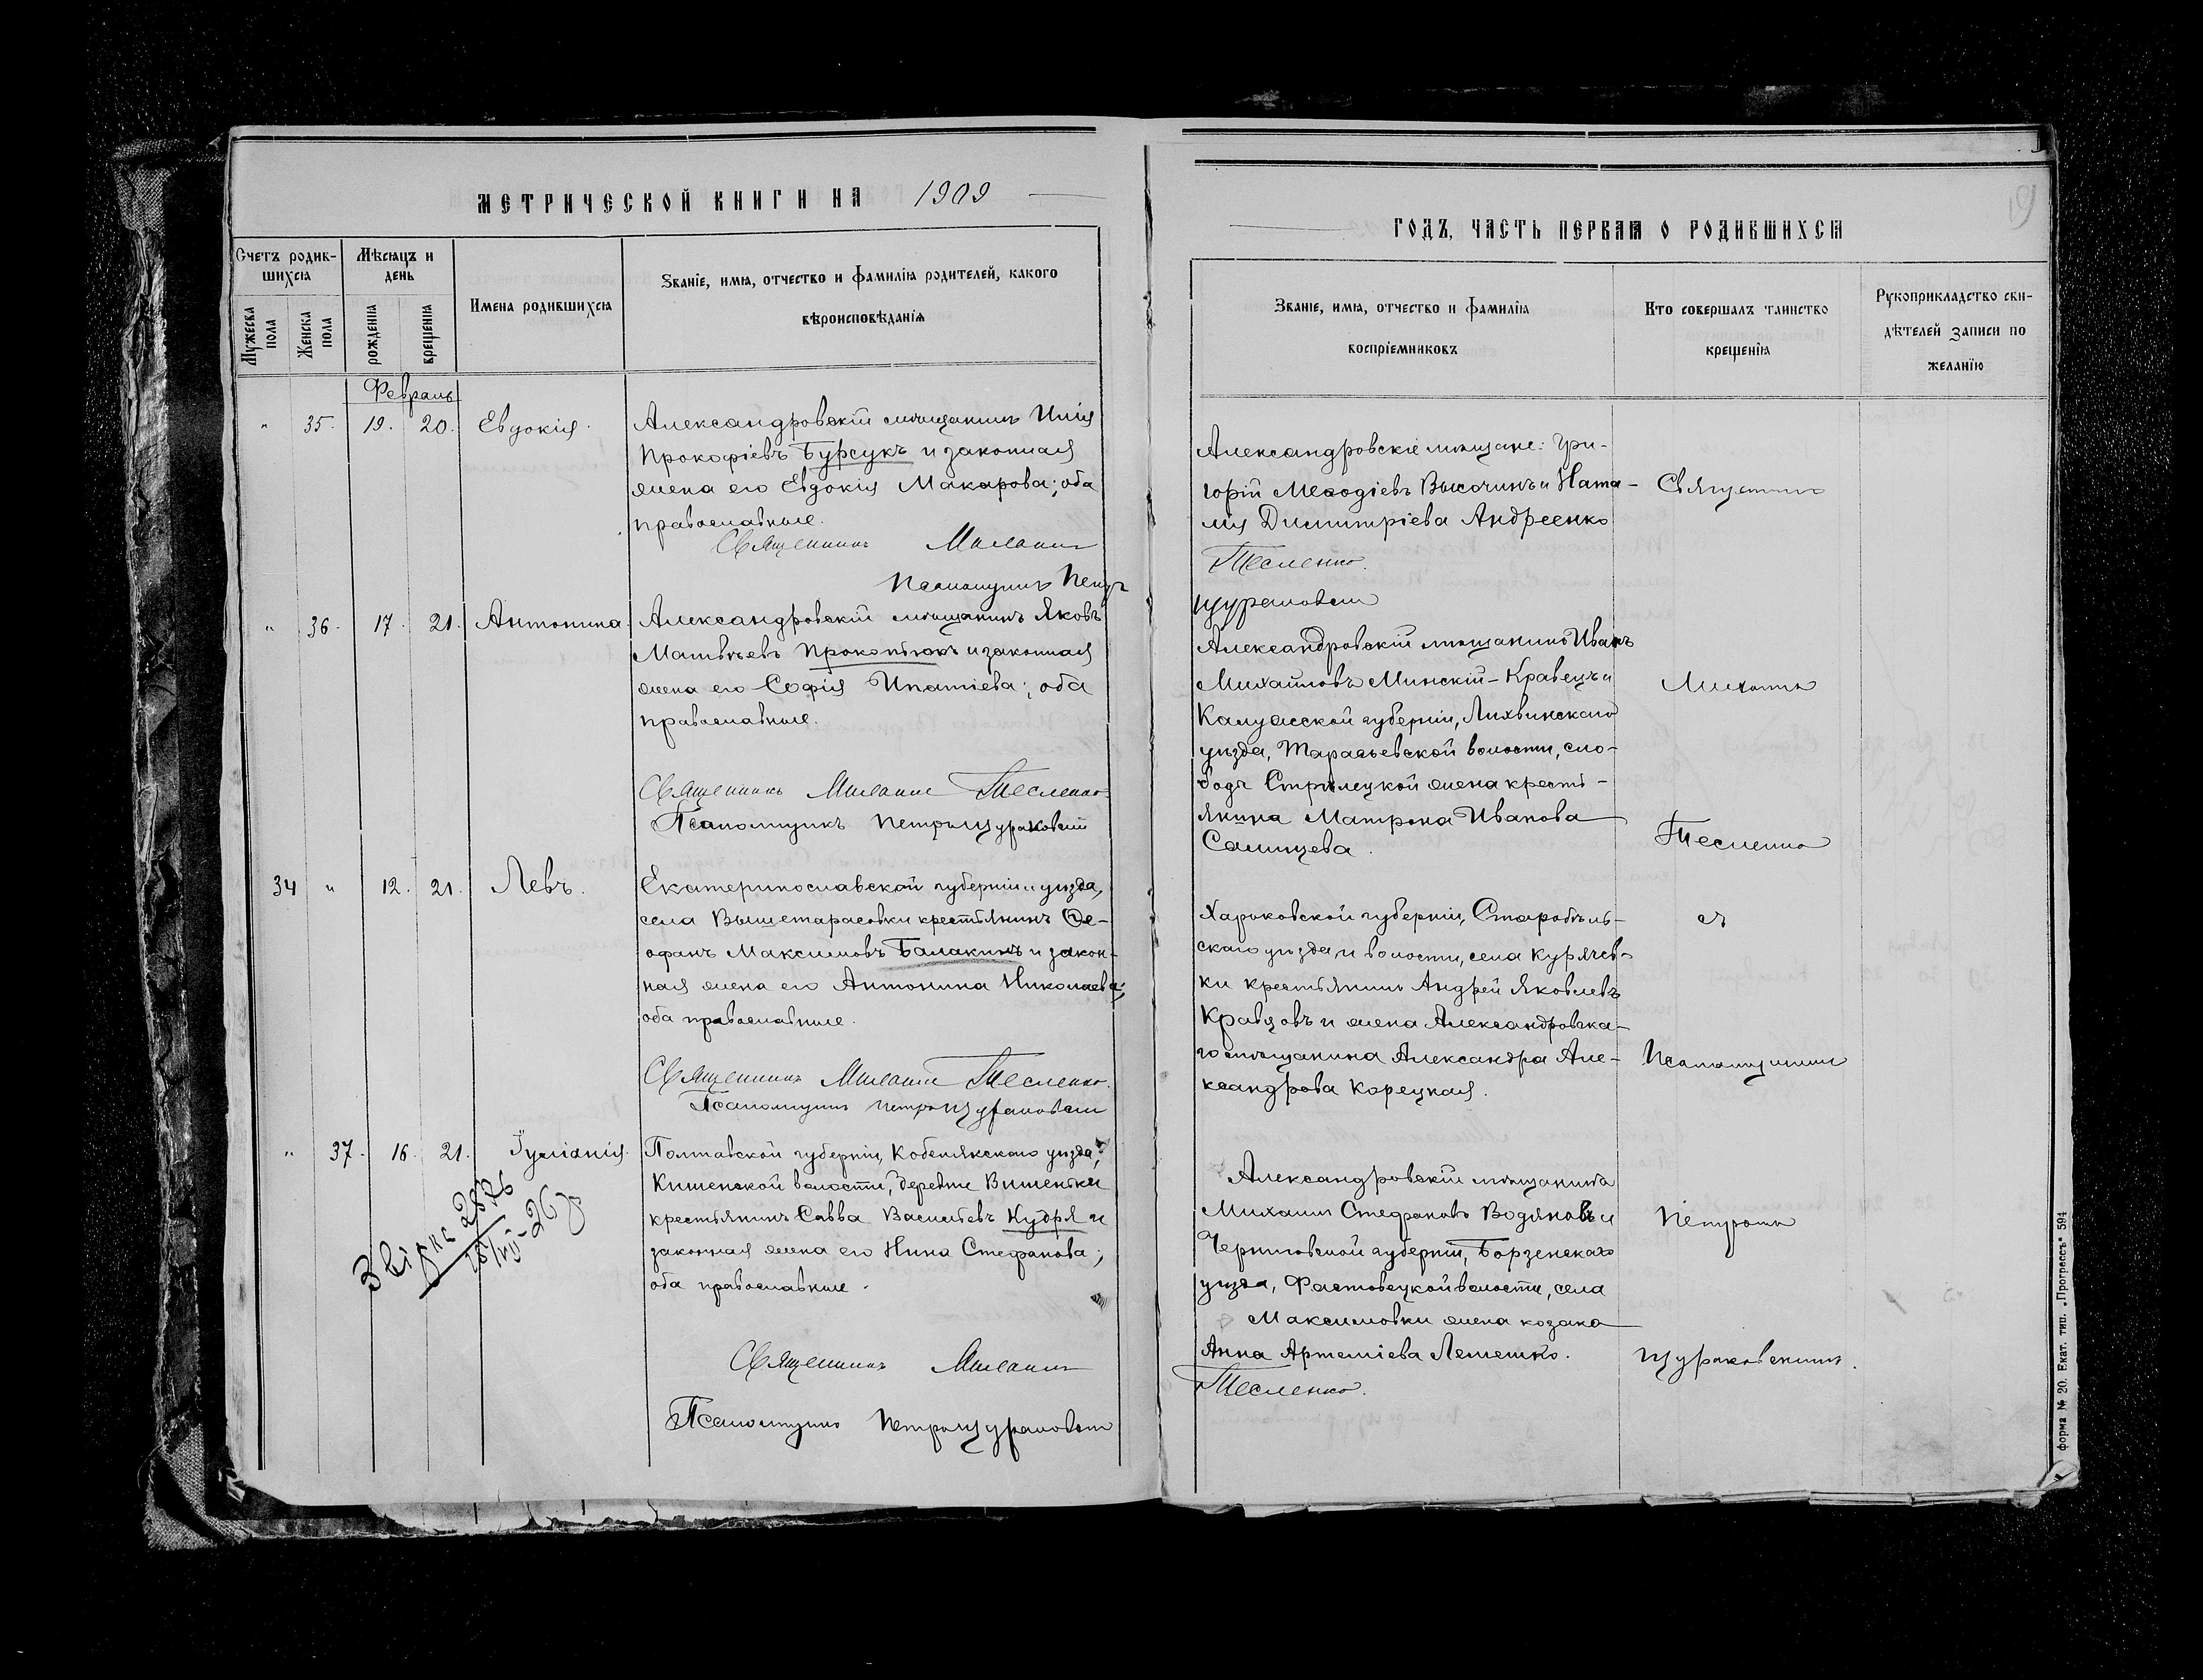 МЕТРИЧЕСКОЙ КНИГИ НА 1909
Счетъ родив-
шихся
Мужеска пола
Женска пола
Мѣсяцъ и
день
рожденія
крещенія
Имена родившихся
Званіе, имя, отчество и фамилія родителей, какого
вѣроисповѣданія
Февраль
" 35. 19. 20. Евдокія.
Александровскій мѣщанинъ Илія
Прокофіевъ Бурсукъ и законная
жена его Евдокія Макарова; оба
православные.
Священникъ
Псаломщикъ Петръ
" 36. 17. 21. Антонина.
Александровскій мѣщанинъ Яковъ
Матвѣевъ Прокопюкъ и законная
жена его Софія Ипатіева; оба
православные.
Священникъ Тесленко
Псаломщикъ Петръ Щураковскій
34 " 12. 21. Левъ.
Екатеринославской губерніи и уѣзда,
села Вышетарасовки крестьянинъ Ѳе-
офанъ Максимовъ Балакинъ и закон-
ная жена его Антонина Николаева;
оба православные.
Священникъ Тесленко.
Псаломщикъ Петръ Щураковскій
" 37. 16. 21. Іуліанія.
Полтавской губерніи, Кобелякскаго уѣзда,
Кишенской волости, деревни Вишеньки
крестьянинъ Савва Васильевъ Кудря и
законная жена его Нина Стефанова;
оба православные.
Священникъ
Псаломщикъ Петръ Щураковскій
ГОДЪ, ЧАСТЬ ПЕРВАЯ О РОДИВШИХСЯ
19
Званіе, имя, отчество и фамилія
воспріемниковъ
Кто совершалъ таинство
крещенія
Рукоприкладство сви-
дѣтелей записи по
желанію
Александровскіе мѣщане: Гри-
горій Меѳодіевъ Высочинъ и Ната-
лія Димитріева Андреенко
Тесленко.
Щураковскій
Александровскій мѣщанинъ Иванъ
Михайловъ Минскій-Кравецъ и
Калужской губерніи, Лихвинскаго
уѣзда, Тарасьевской волости, сло-
боды Стрѣлецкой жена кресть-
янина Матрона Иванова
Харьковской губерніи, Старобѣль-
скаго уѣзда и волости, села Курячев-
ки крестьянинъ Андрей Яковлевъ
Кравцовъ и жена Александровска-
го мѣщанина Александра Але-
ксандрова Корецкая.
Александровскій мѣщанинъ
Михаилъ Стефановъ Водяновъ и
Черниговской губерніи, Борзенскаго
уѣзда, Фастовецкой волости, села
Максимовки жена козака
Анна Артеміева Лемешко.
Тесленко.
Священникъ
Тесленко
съ
Псаломщикомъ
Петромъ
Щураковскимъ.
форма № 20. Екат. тип. „Прогрессъ“ 594